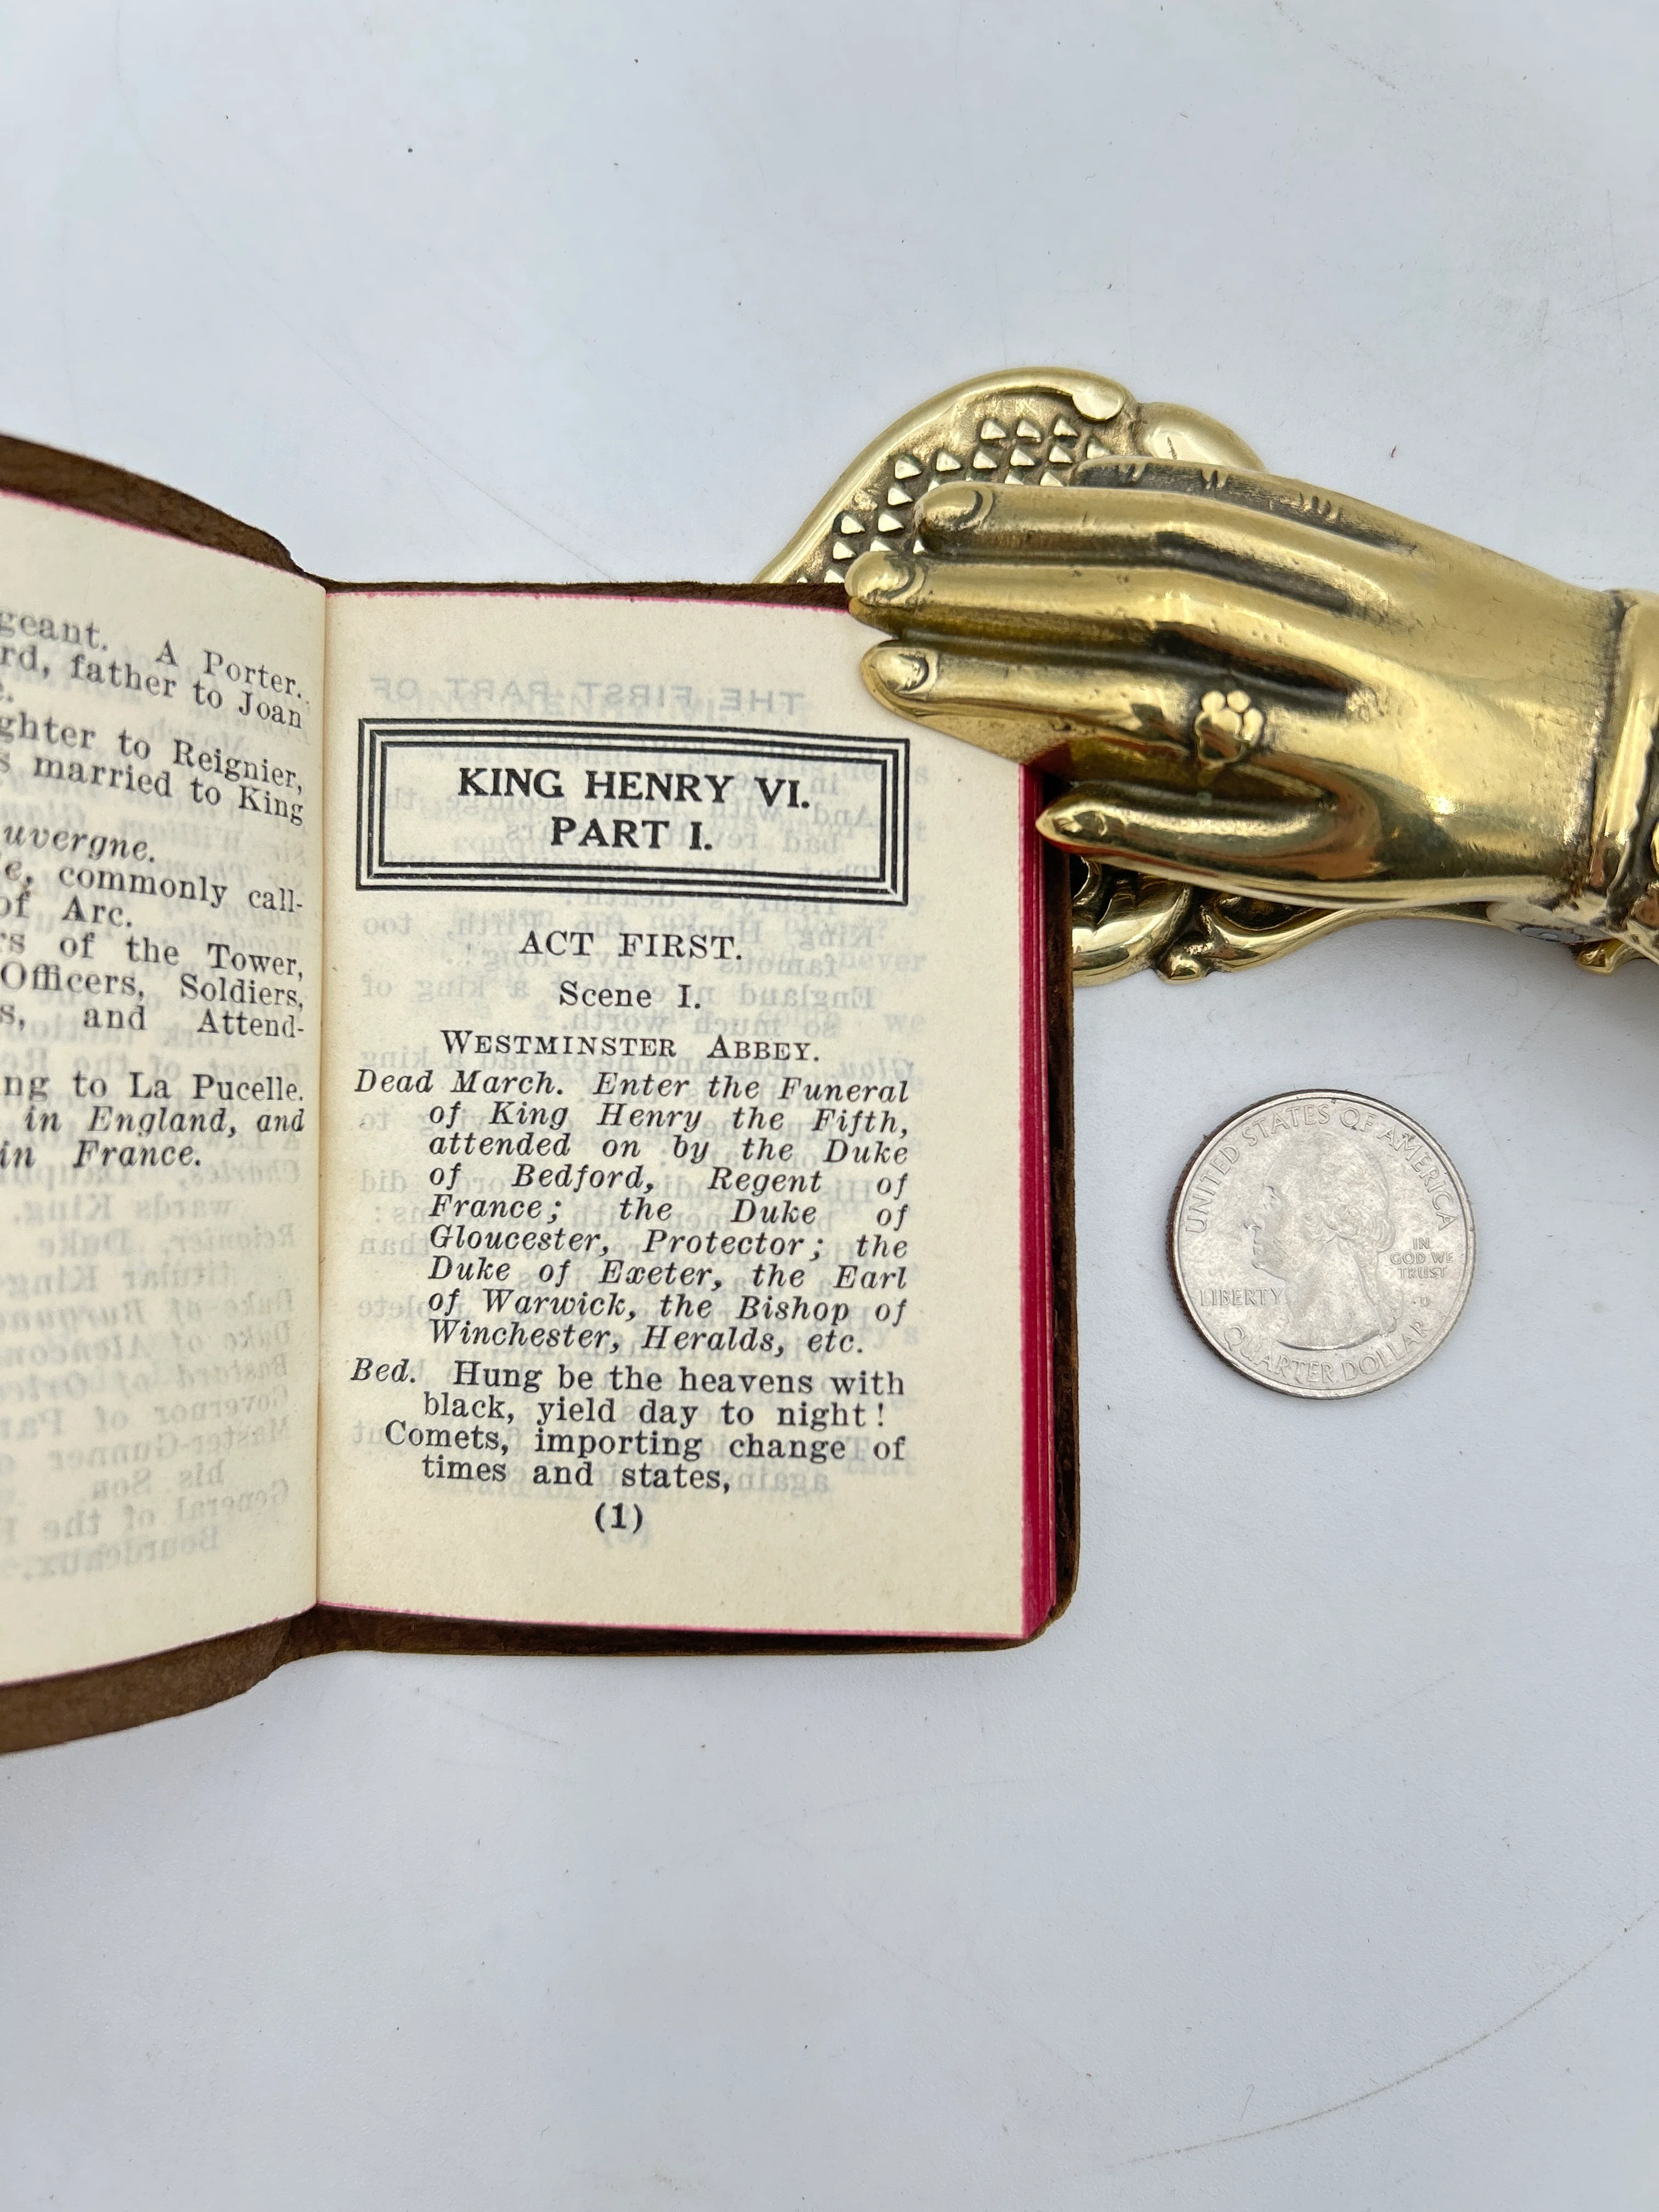 geant. A Porter.
rd, father to Joan
e.
ghter to Reignier,
s married to King
uvergne.
e, commonly call-
of Arc.
rs of the Tower,
Officers, Soldiers,
s, and Attend-
ng to La Pucelle.
in England, and
in France.
KING HENRY VI.
PART I.
ACT FIRST.
Scene I.
WESTMINSTER ABBEY.
Dead March. Enter the Funeral
of King Henry the Fifth,
attended on by the Duke
of Bedford, Regent of
France; the Duke of
Gloucester, Protector; the
Duke of Exeter, the Earl
of Warwick, the Bishop of
Winchester, Heralds, etc.
Bed. Hung be the heavens with
black, yield day to night!
Comets, importing change of
times and states,
(1)
UNITED STATES OF AMERICA
IN
GOD WE
TRUST
LIBERTY
QUARTER DOLLAR